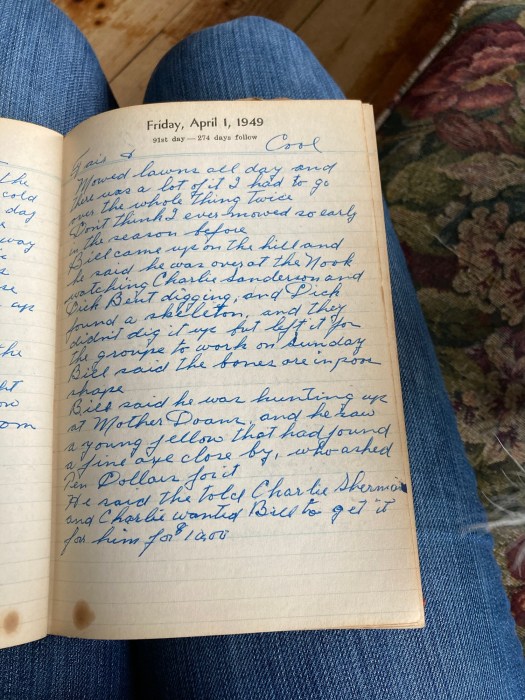 the
cold
day
way
up
the
Friday, April 1, 1949
91st day — 274 days follow
Fair & Cool
Mowed lawns all day and
there was a lot of it I had to go
over the whole thing twice
Dont think I ever mowed so early
in the season before
Bill came up on the hill and
he said he was over at the Nook
watching Charlie Sanderson and
Dick Bent digging, and Dick
found a skeleton, and they
didn't dig it up but left it for
the groupe to work on Sunday
Bill said the bones are in poor
shape
Bill said he was hunting up
at Mother Doans, and he saw
a young fellow that had found
a fine axe close by, who asked
Ten Dollars for it
He said the told Charlie Sherman
and Charlie wanted Bill to get it
for him for $10.00